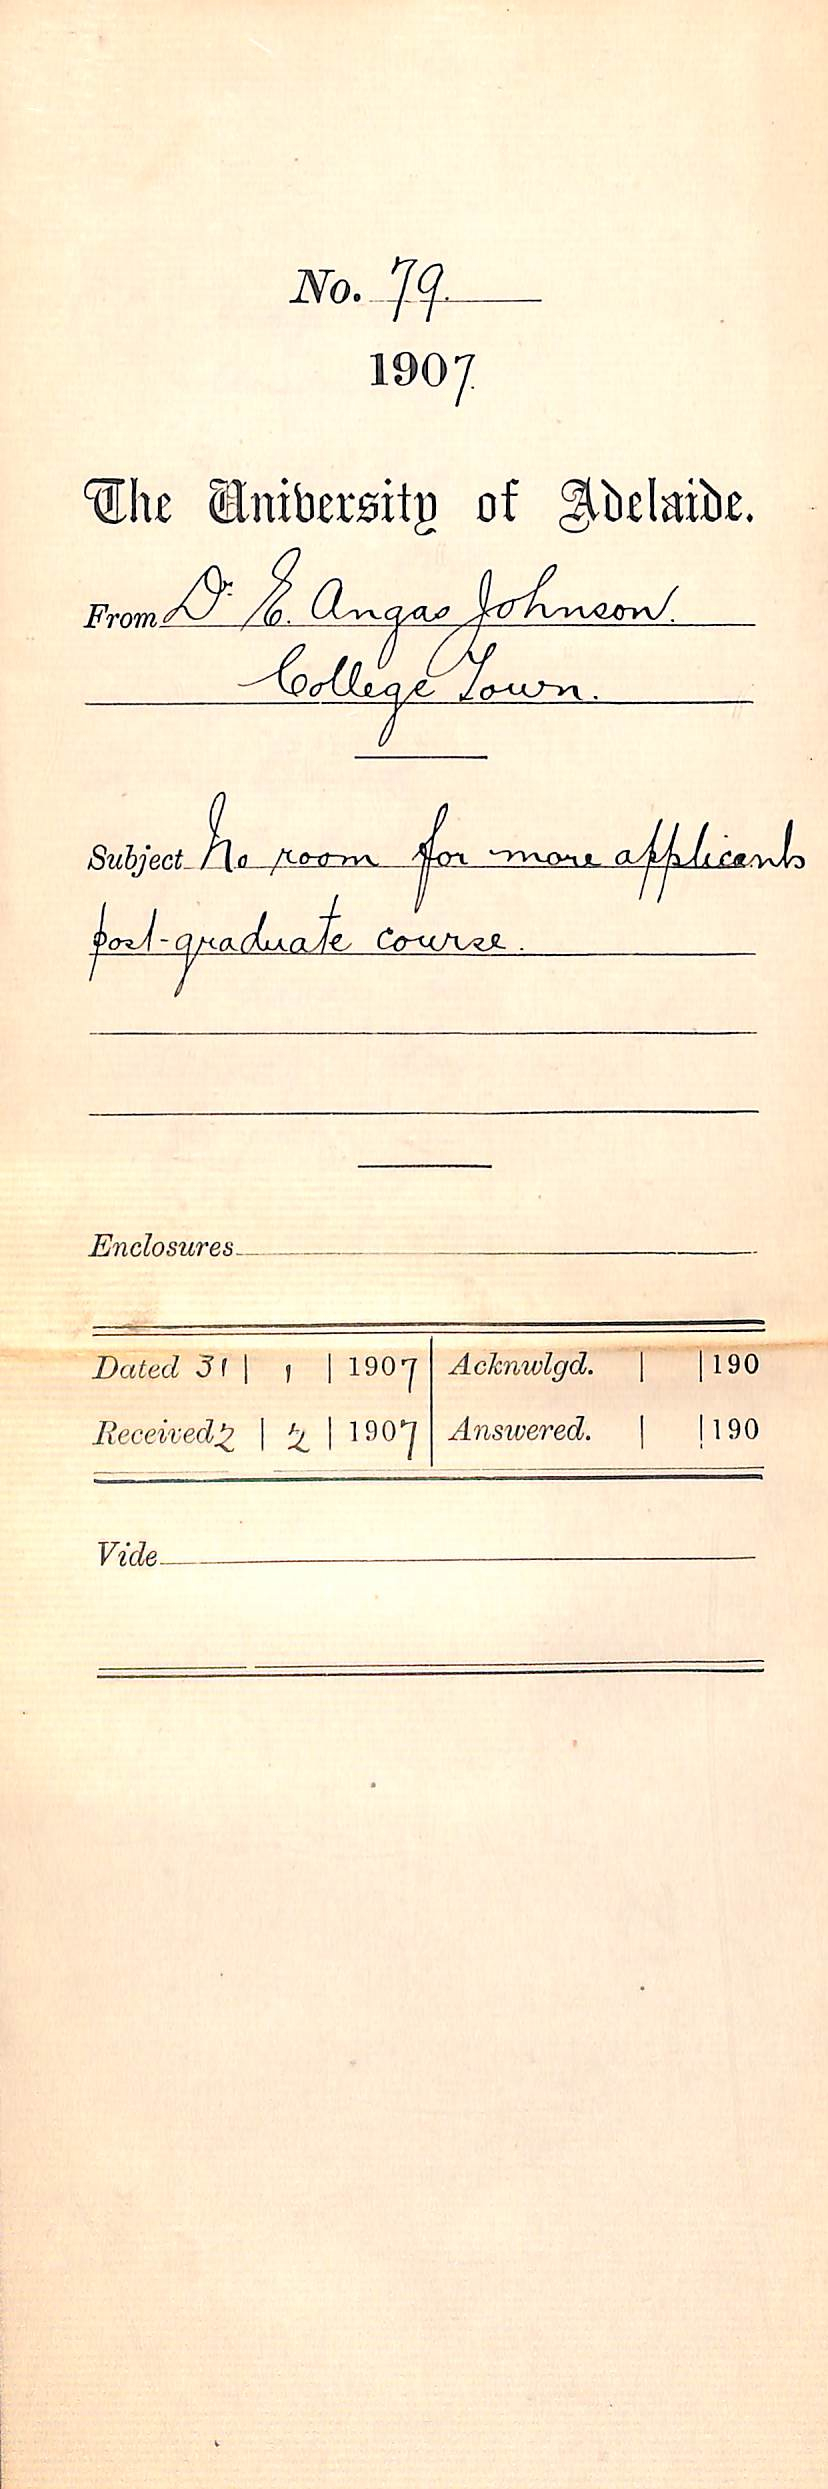 No. 79.
1907.
The University of Adelaide.
From Dr. E. Angas Johnson.
College Town.
Subject No room for more applicants
post-graduate course.
Enclosures
Dated 31 | 1 | 1907 | Acknwlgd. | | 190
Received 2 | 2 | 1907 | Answered. | | 190
Vide